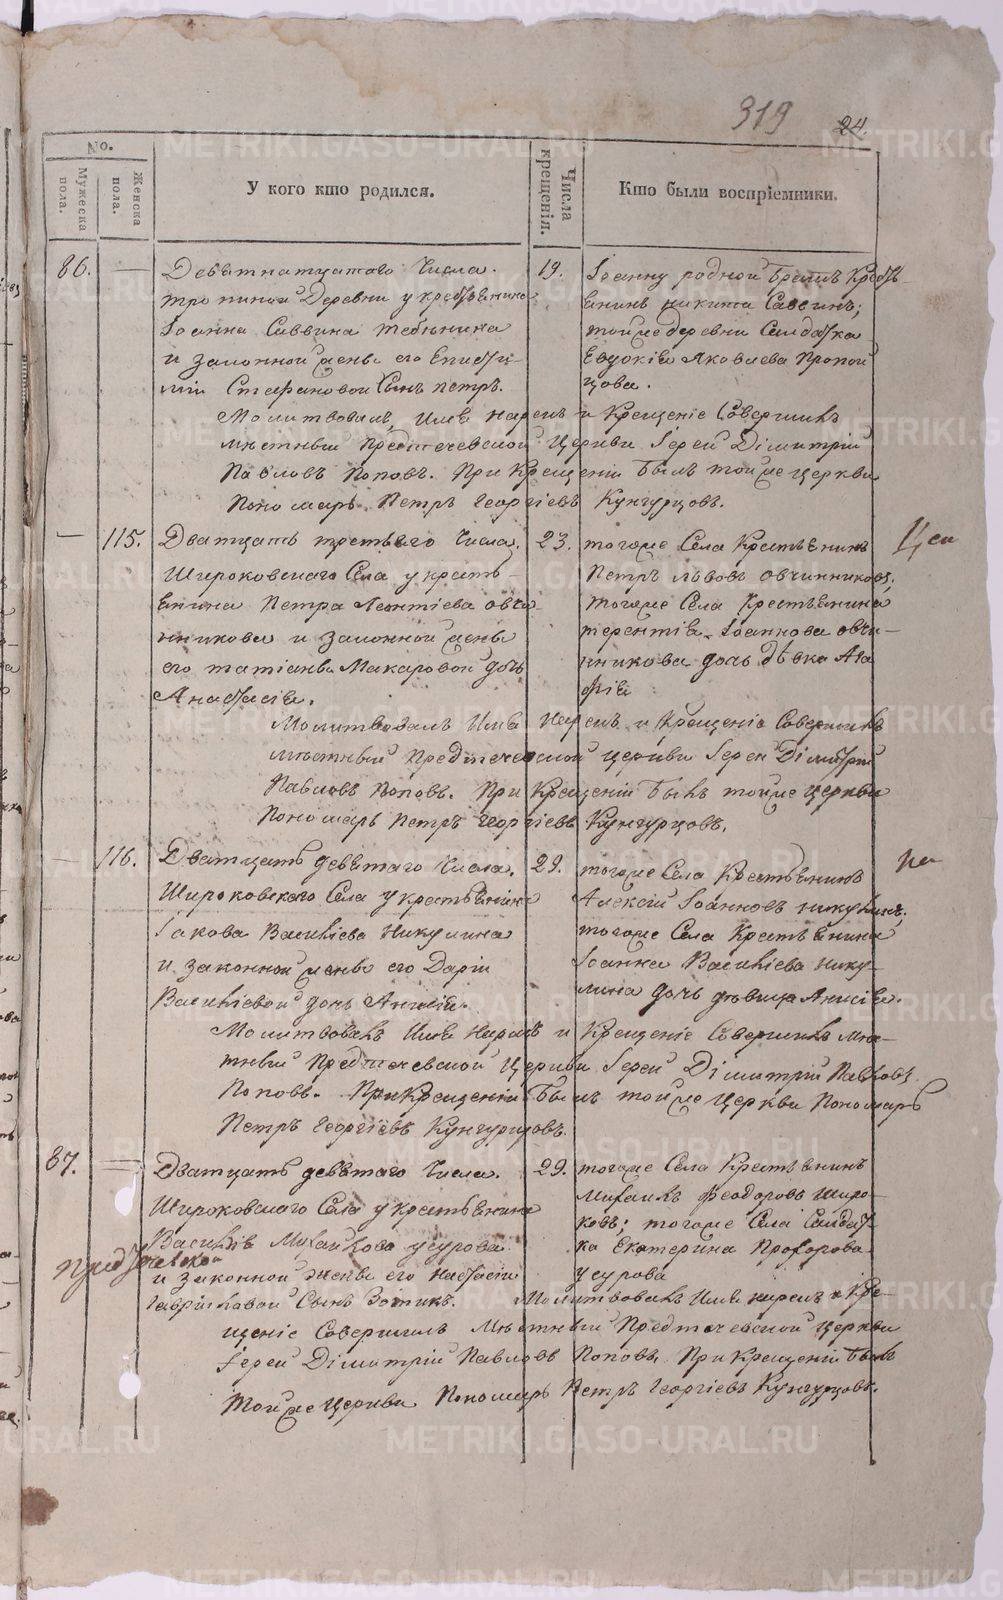 319
24.
No.
Мужеска пола.
Женска пола.
У кого кто родился.
Числа крещенія.
Кто были воспріемники.
86.
Девятнатцатаго Числа.
19.
Деревни у крестьянина
Іоанна Саввина
и законной жены его
Стефановой Сынъ Петръ.
Іоанну родной Братъ Кресть-
янинъ Никита Саввинъ;
тойже деревни Салдатка
Евдокія Яковлева
Молитвовалъ, Имя нарекъ и Крещеніе Совершилъ
мѣстный Предтечевской Церкви Іерей Дімитрій
Павловъ Поповъ. При Крещеніи Былъ тойже Церкви
Пономарь Петръ Георгіевъ Кунгурцовъ.
115.
Дватцать третьяго Числа.
23.
Широковскаго Села у кресть-
янина Петра Леонтіева Овчи
нникова и законной жены
его Татіаны Макаровой дочь
Анастасія.
тогоже Села Крестьянинъ
Петръ Львовъ Овчинниковъ;
тогоже Села Крестьянина
Терентія Іоаннова Овчи-
нникова дочь дѣвка Ага
фія
Молитвовалъ Имя Нарекъ и Крещеніе Совершилъ
мѣстный Предтечевской Церкви Іерей Дімитрій
Павловъ Поповъ. При Крещеніи Былъ тойже Церкви
Пономарь Петръ Георгіевъ Кунгурцовъ.
116.
Дватцать девятаго Числа.
29.
Широковскаго Села у крестьянина
Іакова Василіева Никулина
и законной жены его Даріи
Василіевой дочь Анисія.
тогоже Села Крестьянинъ
Алексій Іоанновъ Никулинъ;
тогоже Села Крестьянина
Іоанна Василіева Нику-
лина дочь дѣвица Анисія.
Молитвовалъ Имя Нарекъ и Крещеніе Совершилъ мѣс-
тный Предтечевской Церкви Іерей Дімитрій Павловъ
Поповъ. При Крещеніи Былъ тойже Церкви Пономарь
Петръ Георгіевъ Кунгурцовъ.
87.
Дватцать девятаго Числа.
29.
Широковскаго Села у крестьянина
Василія Михайлова Усурова
и законной жены его Настасіи
Гавріиловой Сынъ Зотикъ.
тогоже Села Крестьянинъ
Михаилъ Феодоровъ Широ-
ковъ; тогоже Села Салдат-
ка Екатерина Прохорова
Усурова
Молитвовалъ Имя нарекъ и Кре-
щеніе Совершилъ Мѣстный Предтечевской Церкви
Іерей Дімитрій Павловъ Поповъ. При Крещеніи Былъ
Тойже Церкви Пономарь Петръ Георгіевъ Кунгурцовъ.
METRIKI.GASO-URAL.RU